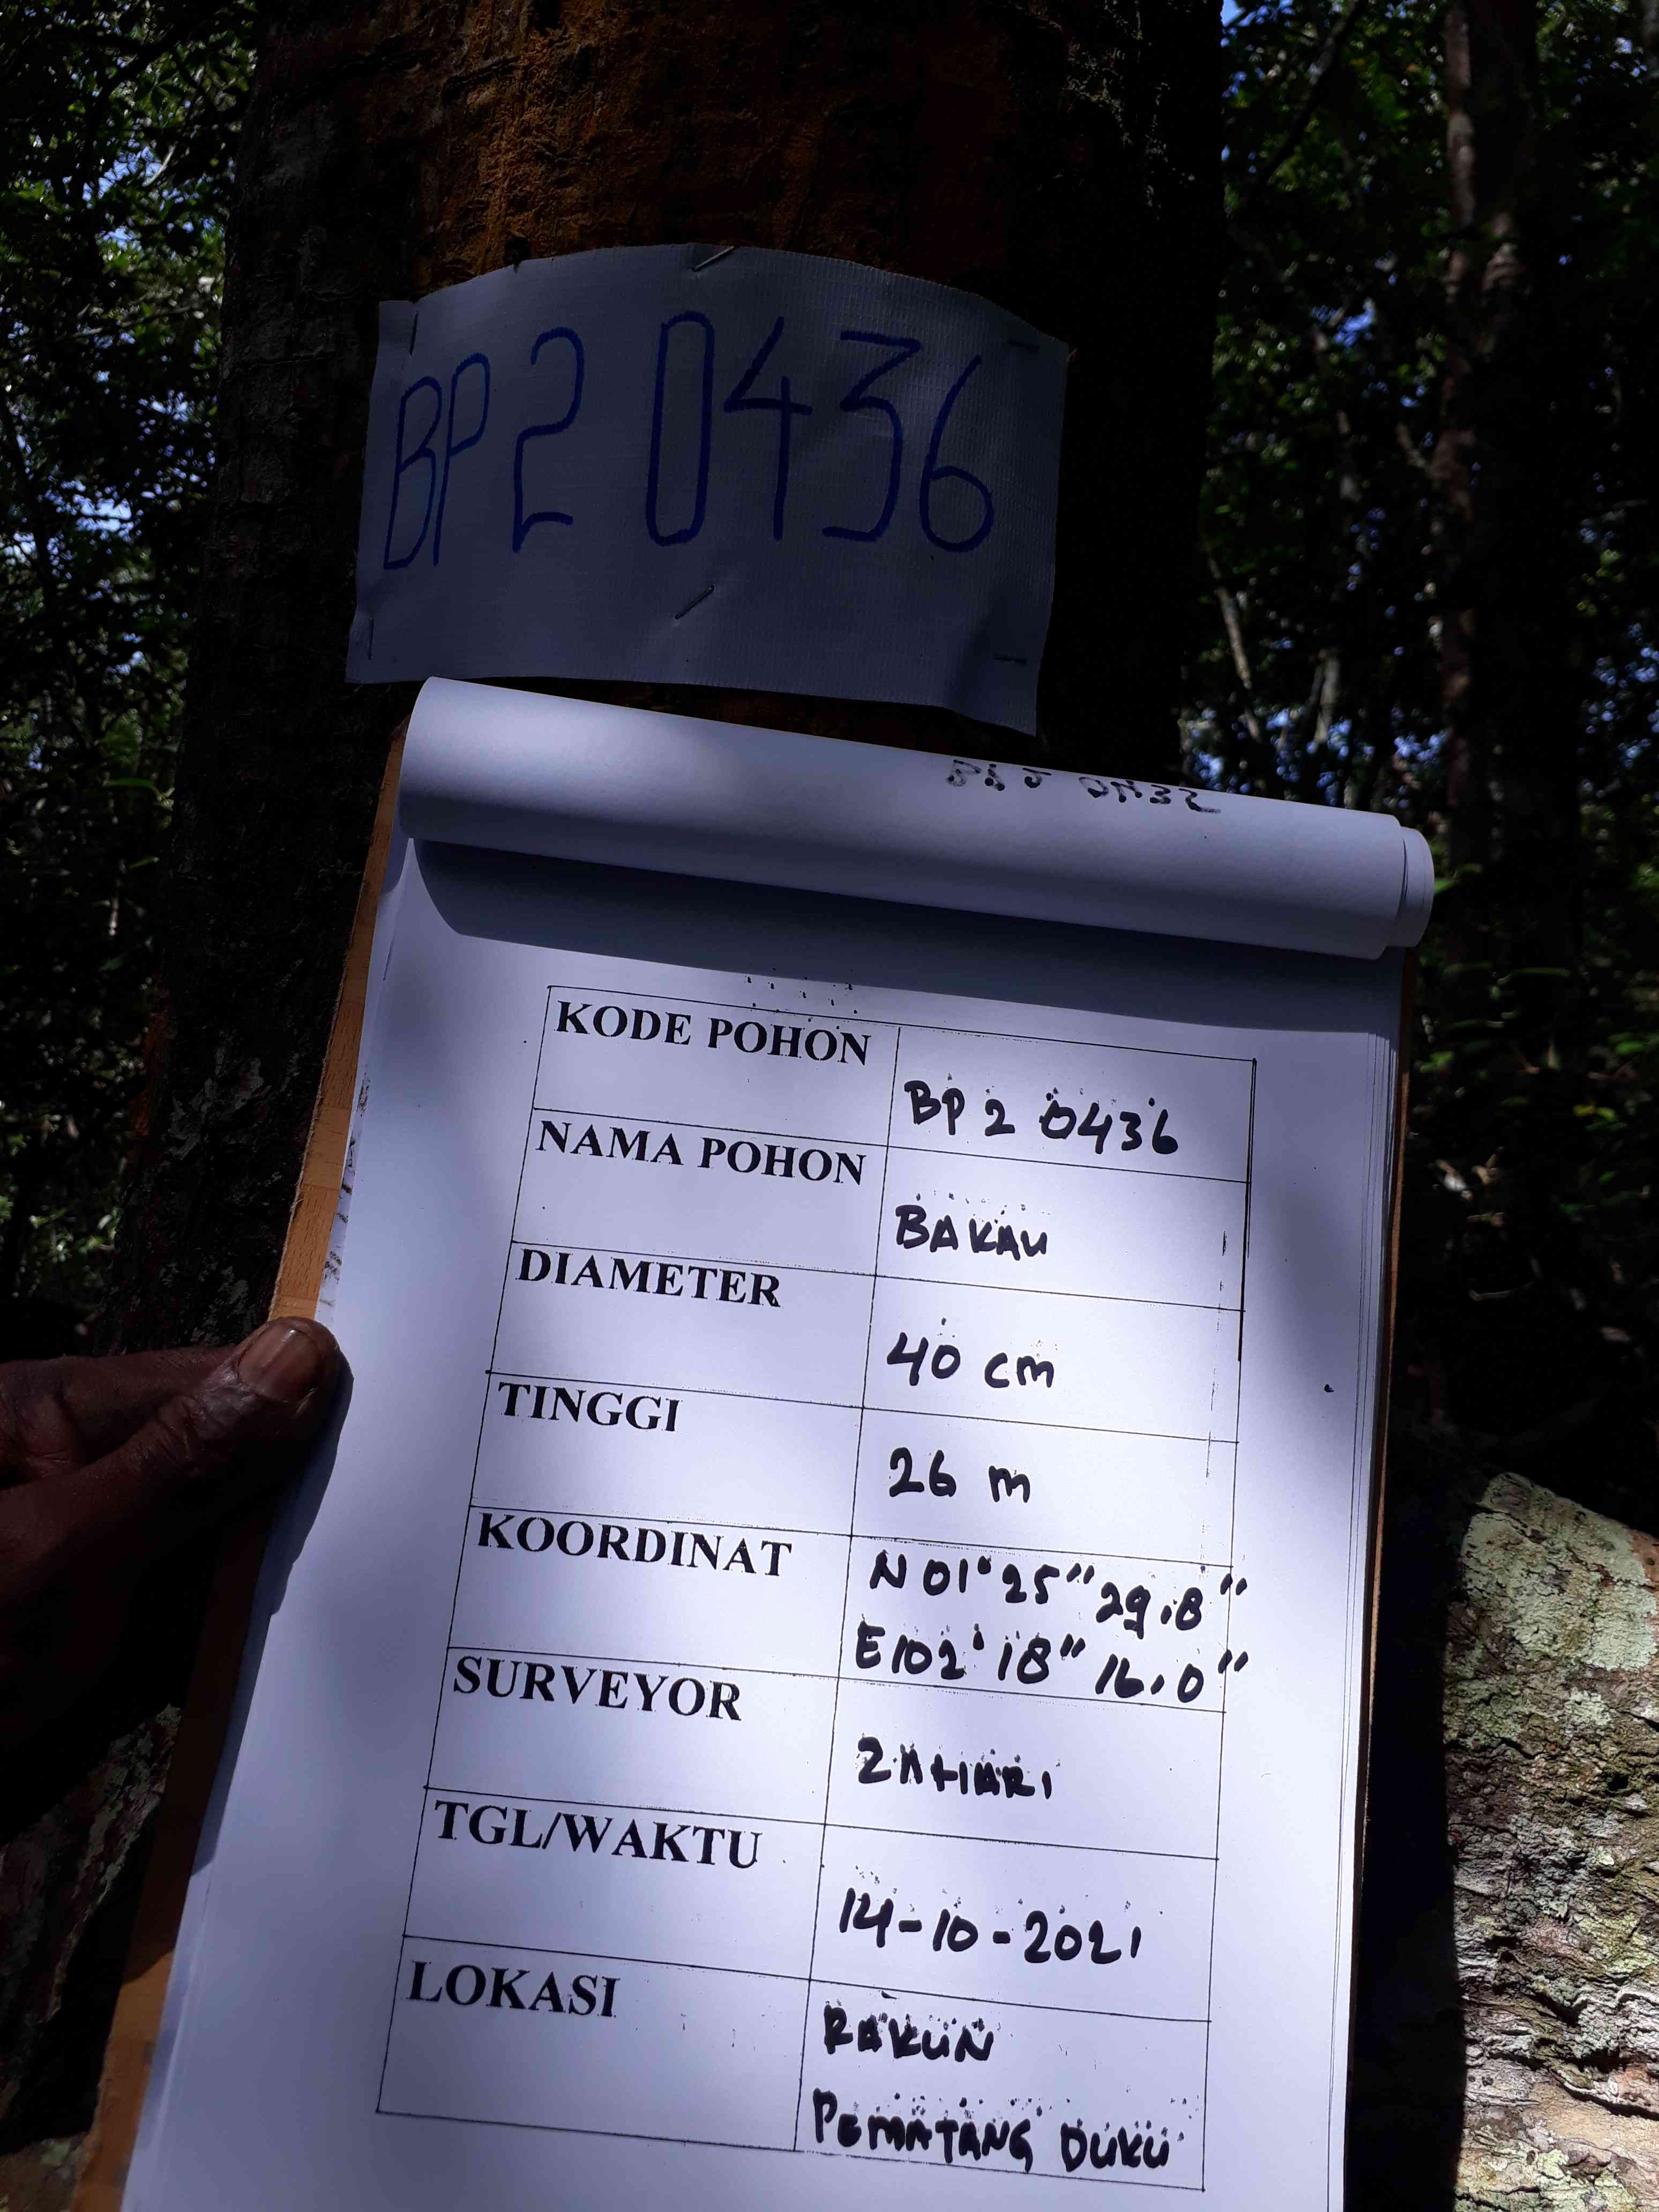 BP 2 0436
KODE POHON
BP 2 0436
NAMA POHON
BAKAU
DIAMETER
40 cm
TINGGI
26 m
KOORDINAT
N 01° 25" 29.8"
E 102° 18" 16.0"
SURVEYOR
ZAHARI
TGL/WAKTU
14-10-2021
LOKASI
RAKUN
PEMATANG DUKU